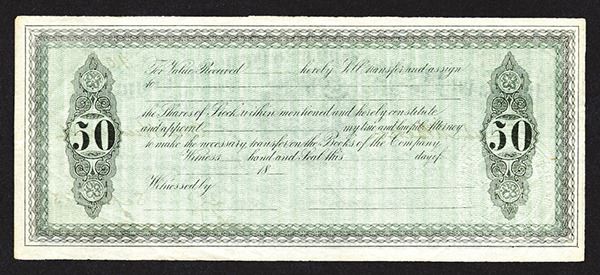 For Value Received hereby Sell transfer and assign
to
50 the Shares of Stock within mentioned and hereby constitute 50
and appoint my true and lawful Attorney
to make the necessary transfer on the Books of the Company.
Witness hand and Seal this day of
18
Witnessed by